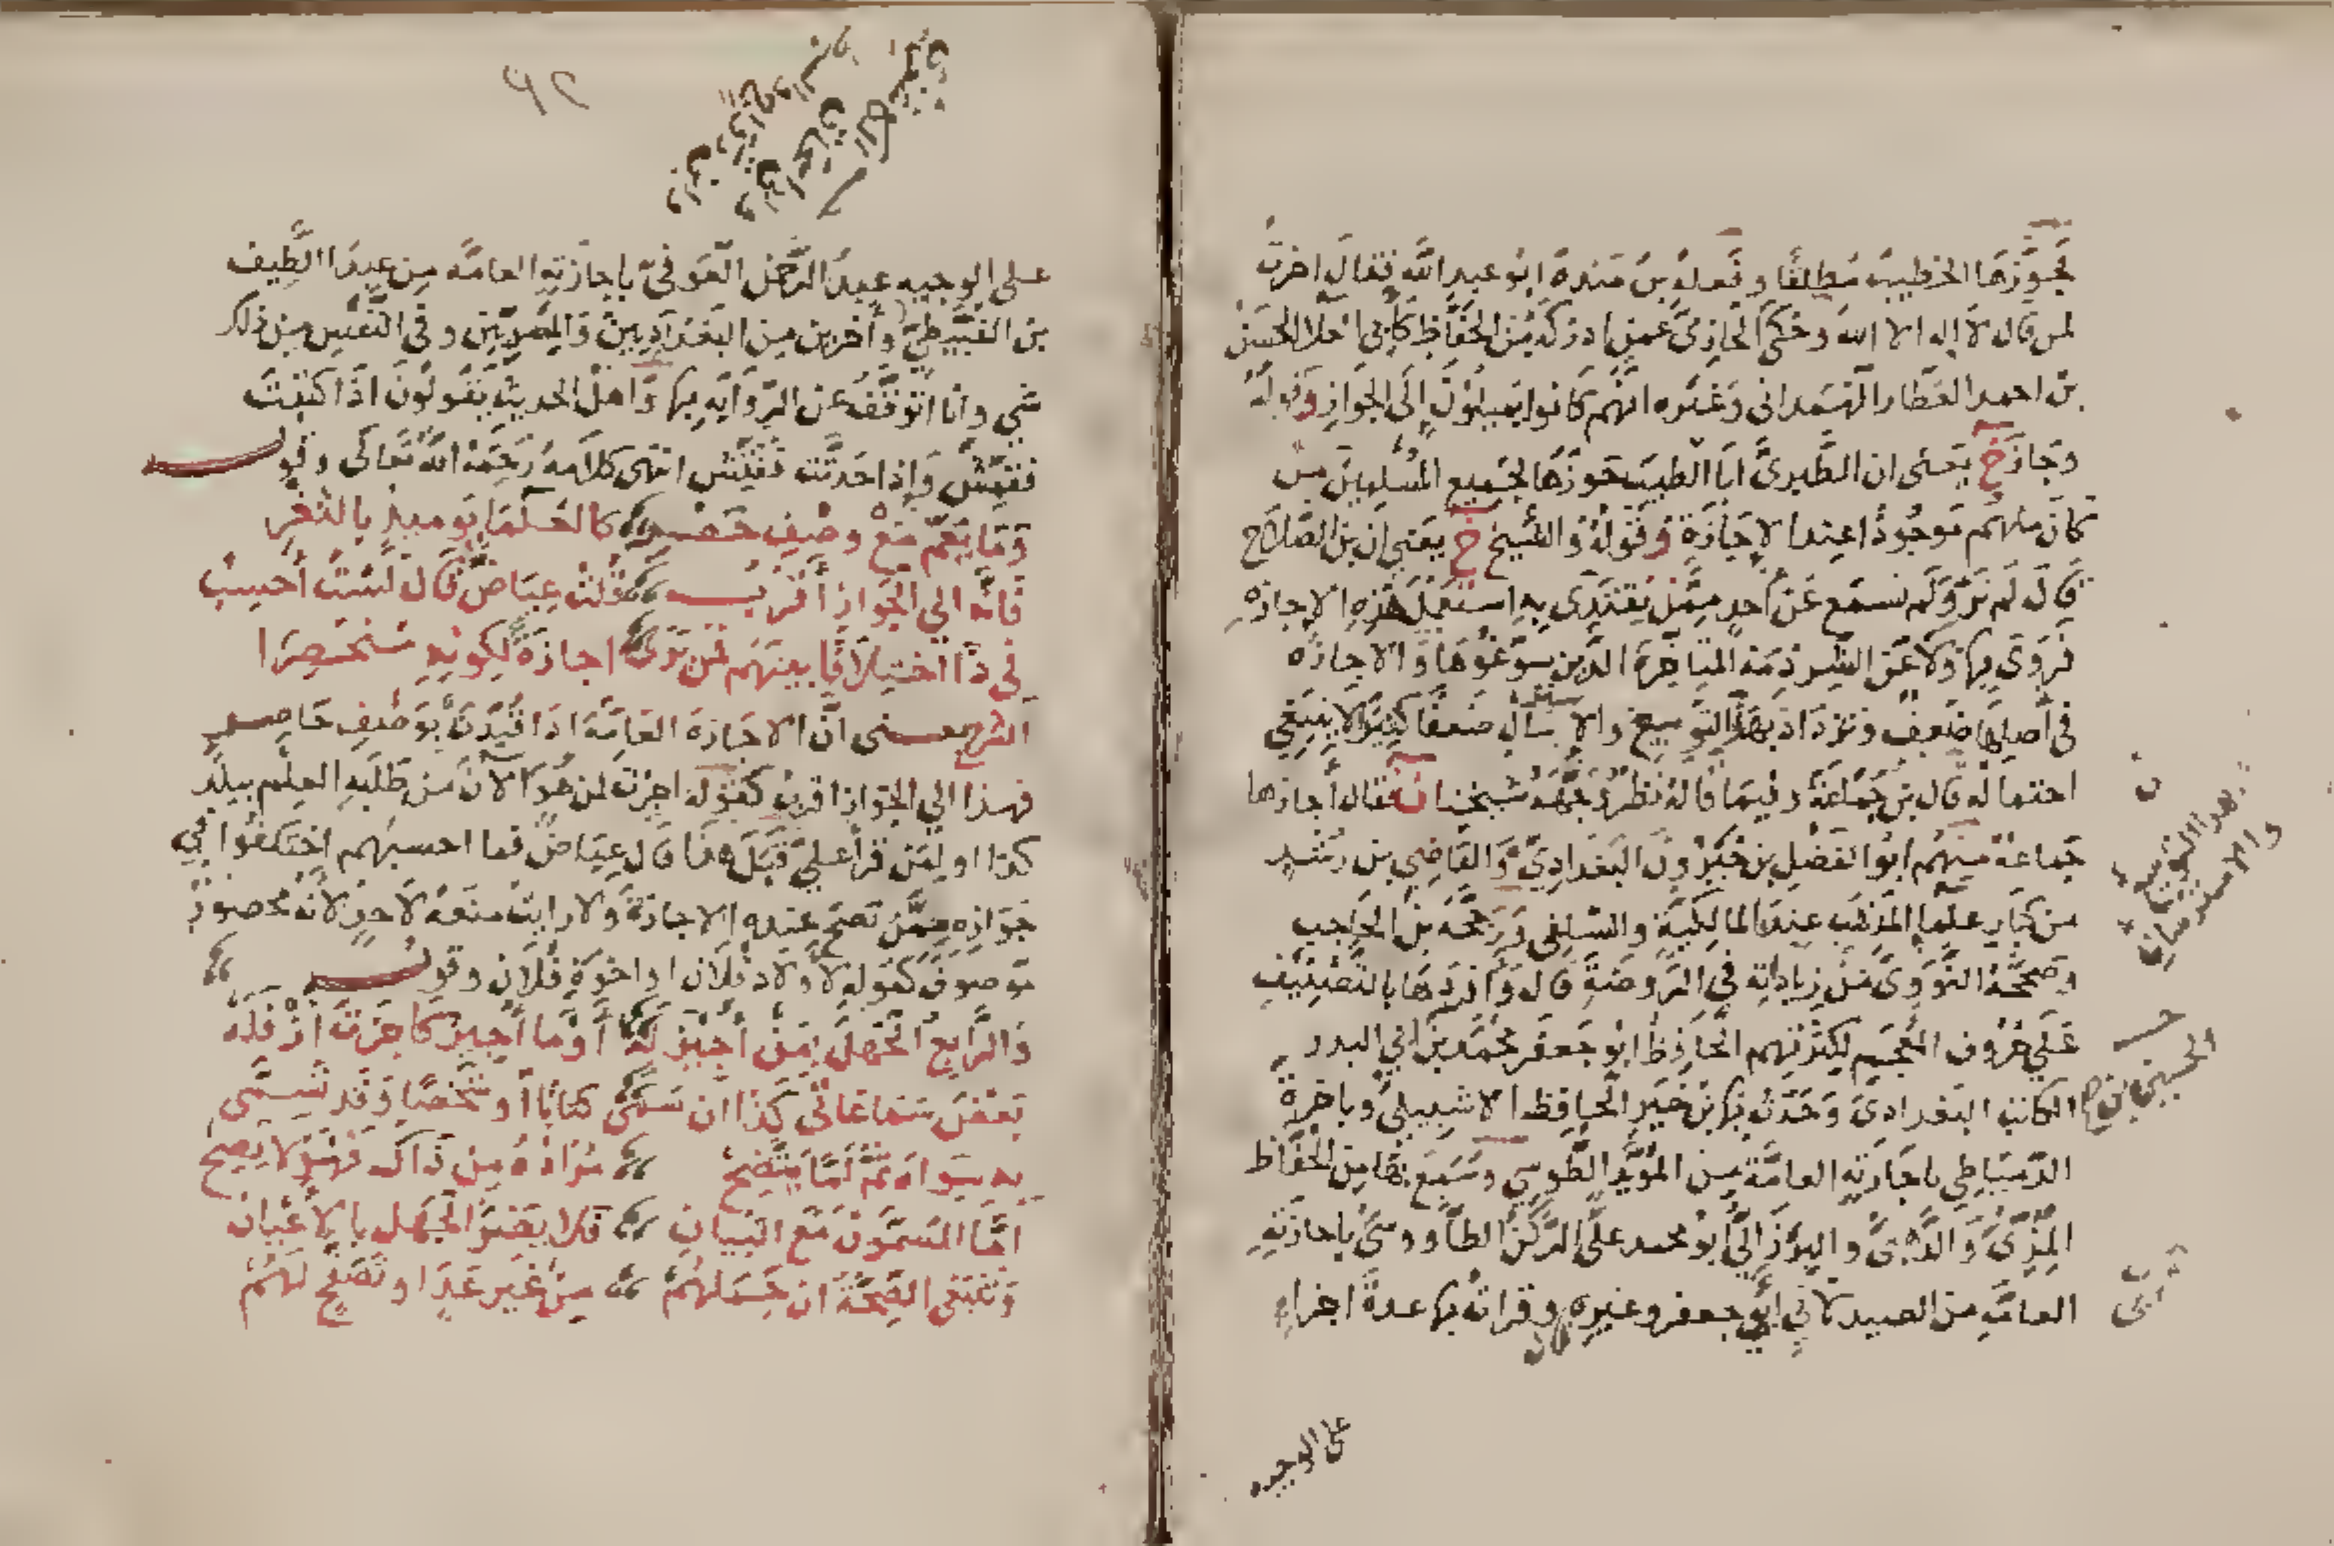 فجوزها الخطيب مطلقا وفعله بن منده ابو عبد الله فقال اجزت
لمن قال لا اله الا الله وحكى الحازمى عمن ادركه من الحفاظ كابى العلا الحسن
بن احمد العطار الهمدانى وغيره انهم كانوا يميلون الى الجواز وقوله
وجاز خ يعنى ان الطبرى ابا الطيب جوزها لجميع المسلمين من
كان منهم موجودا عند الاجازة وقوله والشيخ خ يعنى ان بن الصلاح
قال لم نر ولم نسمع عن احد ممن يقتدى به استعمل هذه الاجازه
فروى بها ولا عن الشرذمة المتاخرة الذين سوغوها والاجازه
فى اصلها ضعف وتزداد بهذا التوسيع والاسترسال ضعفا كثيرا لا ينبغى
احتماله قال بن جماعة وفيما قاله نظر وجهه شيخنا ن فقال أجازها
جماعة منهم ابو الفضل بن خيرون البغدادى والقاضى بن رشد
من كبار علما المذهب عند المالكية والسلفى ورجحه بن الحاجب
وصححه النووى من زياداته فى الروضة قال وافردها بالتصنيف
على حروف المعجم لكثرتهم الحافظ ابو جعفر محمد بن ابى البدر
الكاتب البغدادى وحدث بها بن خير الحافظ الاشبيلى وباخرة
الدمياطى باجازته العامة من المؤيد الطوسى وسمع بها من الحفاظ
المزى والذهبى والبرزالى ابو محمد على الركن الطاووسى باجازته
العامة من الصيدلانى ابى جعفر وغيره وقرات بها عدة اجزاء
بهذا التوسيع
والاسترسال
الحسين بن
على الوجيه
٩٢
على الوجيه عبد الرحمن العوفى باجازته العامة من عبد اللطيف
بن القبيطى وأخرين من البغداديين والمصريين وفى النفس من ذلك
شى وانا اتوقف عن الرواية بها واهل الحديث يقولون اذا كتبت
فقمش واذا حدثت ففتش انتهى كلامه رحمه الله تعالى وقول
وما يعم مع وصف حصر كالعلما يوميذ بالثغر
فانه الى الجواز أقرب قلت عياض قال لست أحسب
فى ذا اختلافا بينهم ممن يرى اجازة لكونه منحصرا
الشرح يعنى ان الاجازة العامة اذا قيدت بوصف حاصر
فهذا الى الجواز اقرب كقوله اجزت لمن هو الآن من طلبة العلم ببلد
كذا او لمن قرأ على قبل هذا قال عياض فما احسبهم اختلفوا فى
جوازه ممن تصح عنده الاجازة ولا رايت منعه لاحد لانه محصور
موصوف كقوله لاولاد فلان او اخوة فلان وقول
والرابع الجهل بمن أجيز له أو ما أجيز كاجزت أزفله
بعض سماعاتى كذا ان سمى كتابا أو شخصا وقد تسمى
به سواه ثم لما يتضح مراده من ذاك فهو لا يصح
اما المسمون مع البيان فلا يضر الجهل بالاعيان
وتنبغى الصحة ان جملهم من غير عد وتصفح لهم